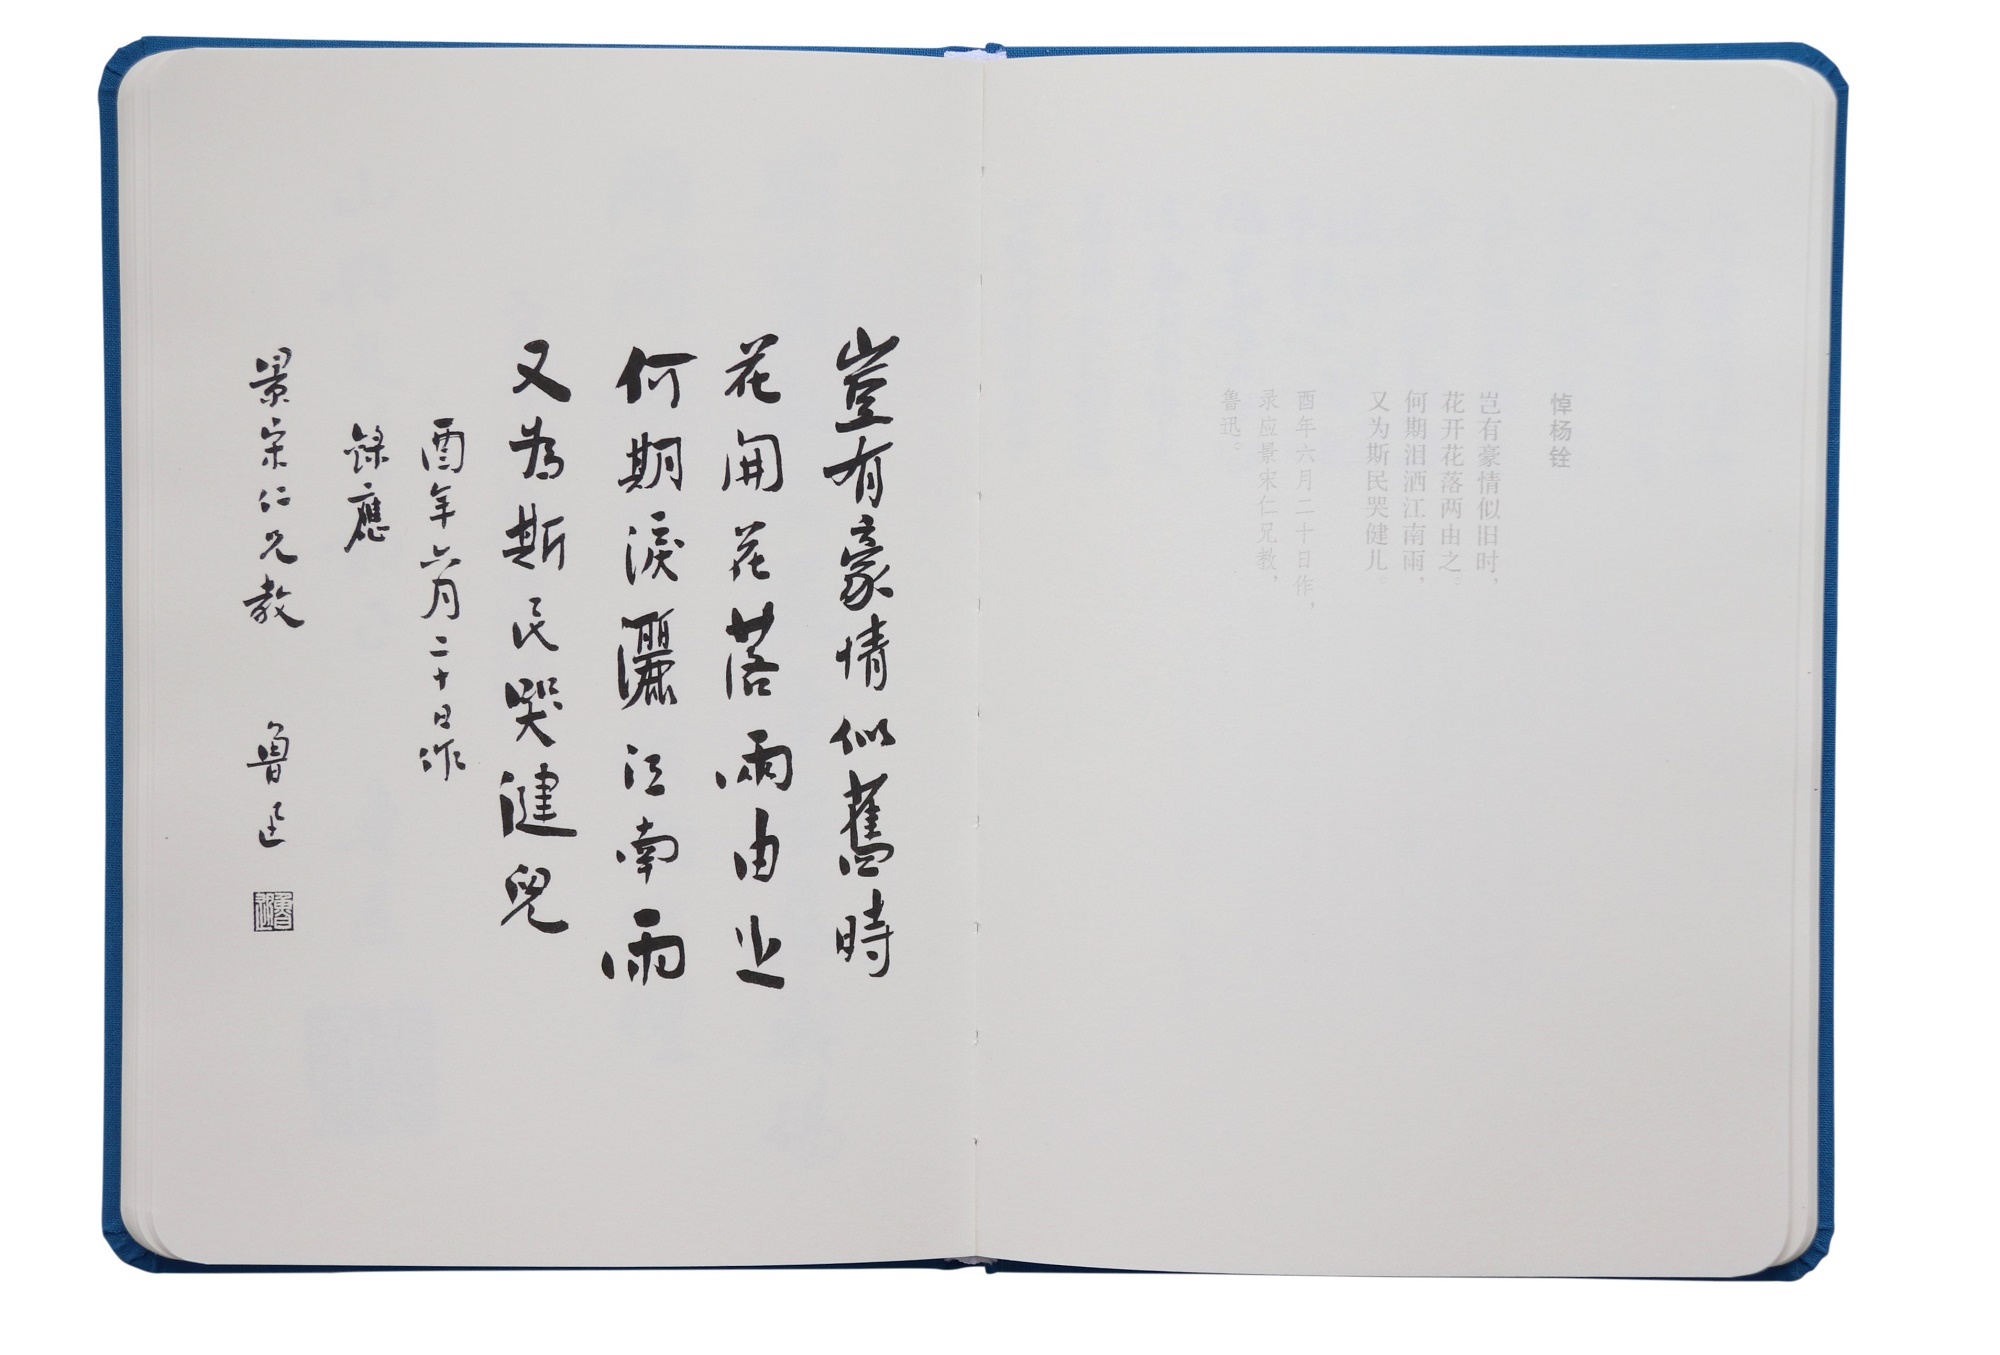 悼杨铨
岂有豪情似旧时，
花开花落两由之。
何期泪洒江南雨，
又为斯民哭健儿。
酉年六月二十日作，
录应景宋仁兄教，
鲁迅。
豈有豪情似舊時
花開花落兩由之
何期淚灑江南雨
又為斯民哭健兒
酉年六月二十日作
錄應
景宋仁兄教 魯迅
魯迅